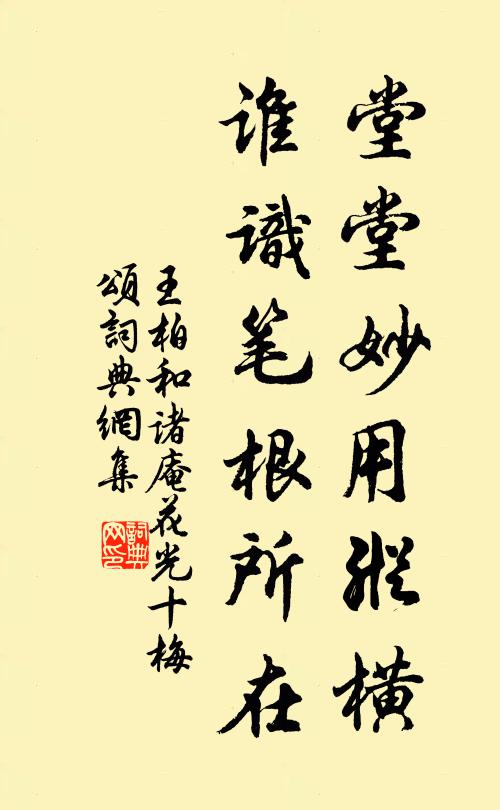 堂堂妙用縱橫
谁識笔根所在
王柏和诸庵花光十梅
頌詞典網集
詞典网印